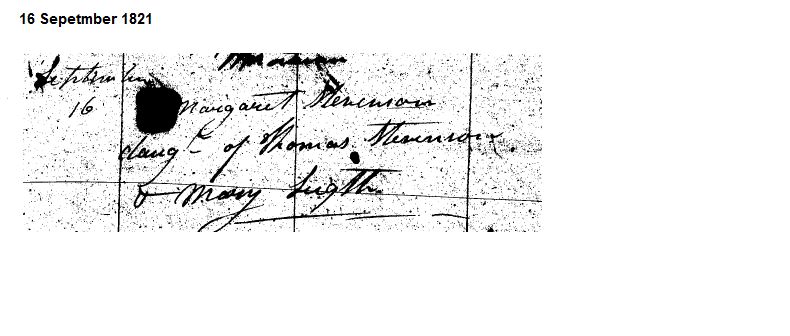 16 Sepetmber 1821
September
16 Margaret Stevenson
daugr of Thomas Stevenson
& Mary Lugth